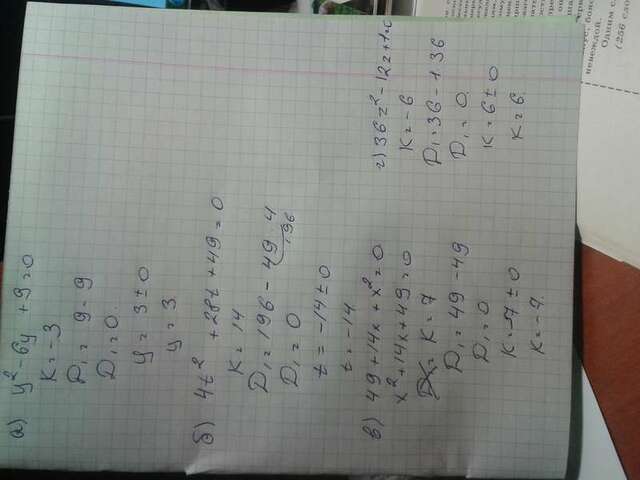 а) y² - 6y + 9 = 0
K = -3
D₁ = 9 - 9
D₁ = 0.
y = 3 ± 0
y = 3
б) 4t² + 28t + 49 = 0
K = 14
D₁ = 196 - 49·4
196
D₁ = 0
t = -14 ± 0
t = -14
в) 49 + 14x + x² = 0
x² + 14x + 49 = 0
K = 7
D₁ = 49 - 49
D₁ = 0
K = -7 ± 0
K = -7.
г) 36z² - 12z + 1 = 0
K = -6
D₁ = 36 - 1·36
D₁ = 0.
K = 6 ± 0
K = 6.
невеждой.
Одним с
(256 сло